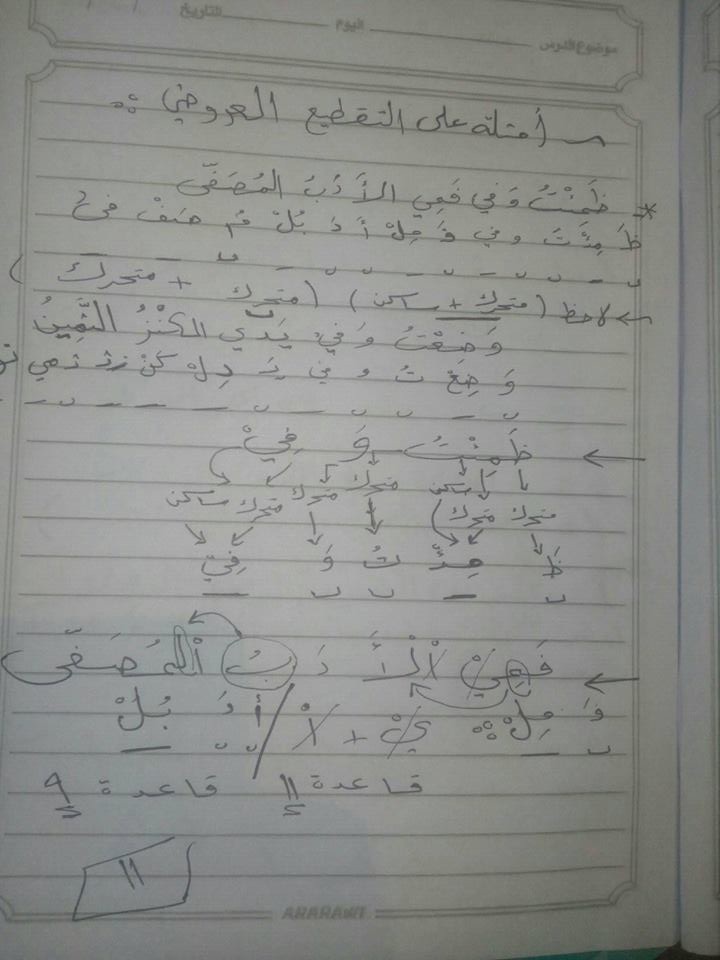 التاريخ / / اليوم
موضوع الدرس
أمثلة على التقطيع العروضي :
* ظَمِئْتُ وَفي فَمِي الأَدَبُ المُصَفّى
ظَ مِئْ تُ و في فَ مِلْ أ دَ بُلْ مُ صَفْ فى
ں – ں ں – ں – ں ں – ں – –
لاحظ (متحرك + ساكن) (متحرك + متحرك)
وَضِعْتُ وَفيْ يَدَي الكَنْزُ الثَّمِينُ
وَ ضِعْ تُ و في يَ دِلْ كنْ زُث ثمي نُ
ں – ں ں – ں – – – ں –
ظَمِئْتُ وَ فِيْ
متحرك متحرك ساكن متحرك متحرك متحرك ساكن
ظَ مِئْ تُ وَ فِيْ
ں – ں ں –
فَمِيْ الْأَدَبُ الْمُصَفّى
فَ مِلْ : يْ + ا / أ دَ بُلْ
ں – ں ں –
قاعدة 11 قاعدة 9
11
ARARAWI